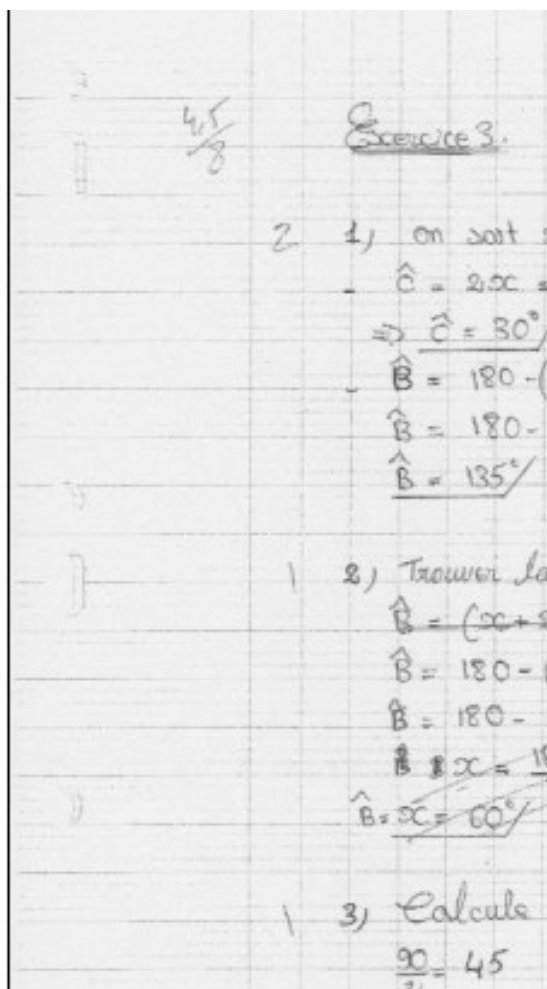 4,5/8
Exercice 3.
2 1) on sait
- Ĉ = 2x =
=> Ĉ = 30°
- B̂ = 180 - (
B̂ = 180 -
B̂ = 135°
1 2) Trouver la
B̂ = (x +
B̂ = 180 -
B̂ = 180 -
x =
B̂ = x = 60°
1 3) Calcule
90/2 = 45